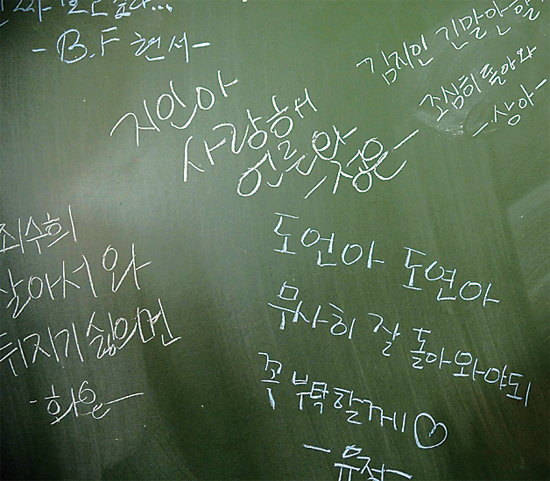 -B.F 현서-
김지인 긴말안할
조심히 돌아와
-상아-
지인아
사랑해
얼른와
-정은-
최수희
살아서 와
뒤지기 싫으면
-화영-
도연아 도연아
무사히 잘 돌아와야되
꼭 부탁할께♡
-유정-